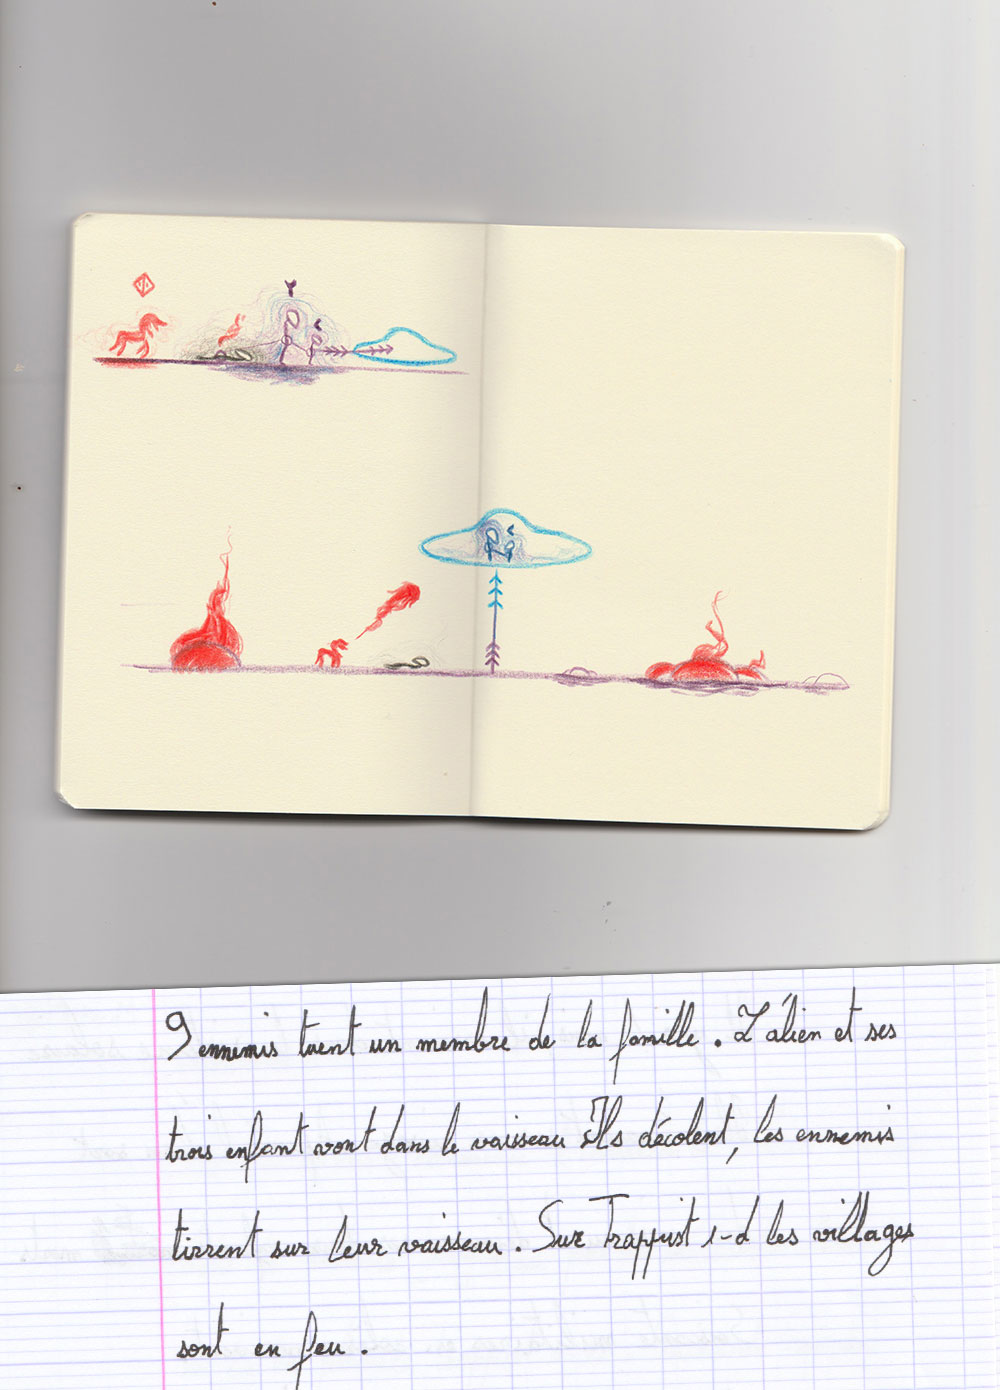 9 ennemis tuent un membre de la famille. L'alien et ses
trois enfant vont dans le vaisseau Ils décolent, les ennemis
tirrent sur leur vaisseau. Sur Trappist 1-d les villages
sont en feu.